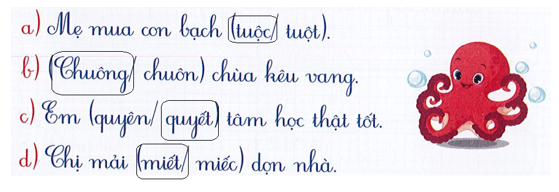 a) Mẹ mua con bạch (tuộc/ tuột).
b) (Chuông/ chuôn) chùa kêu vang.
c) Em (quyên/ quyết) tâm học thật tốt.
d) Chị mải (miết/ miếc) dọn nhà.